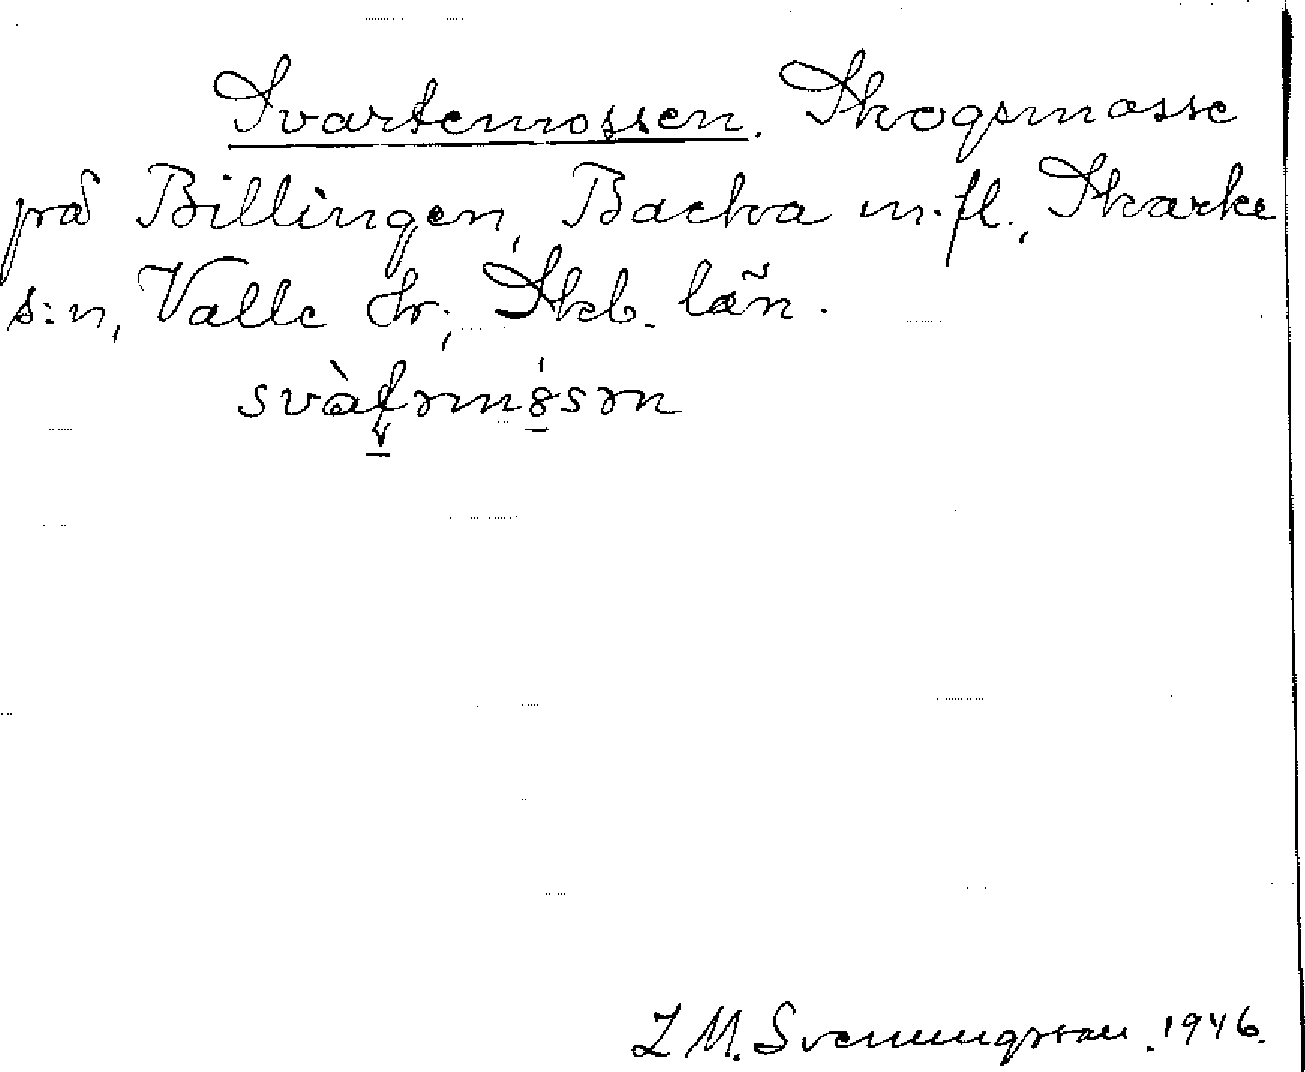 Svartemossen. Skogsmosse
på Billingen, Backa m.fl., Skarke
s:n, Valle hr., Skb. län.
L M. Svenungsson. 1946.